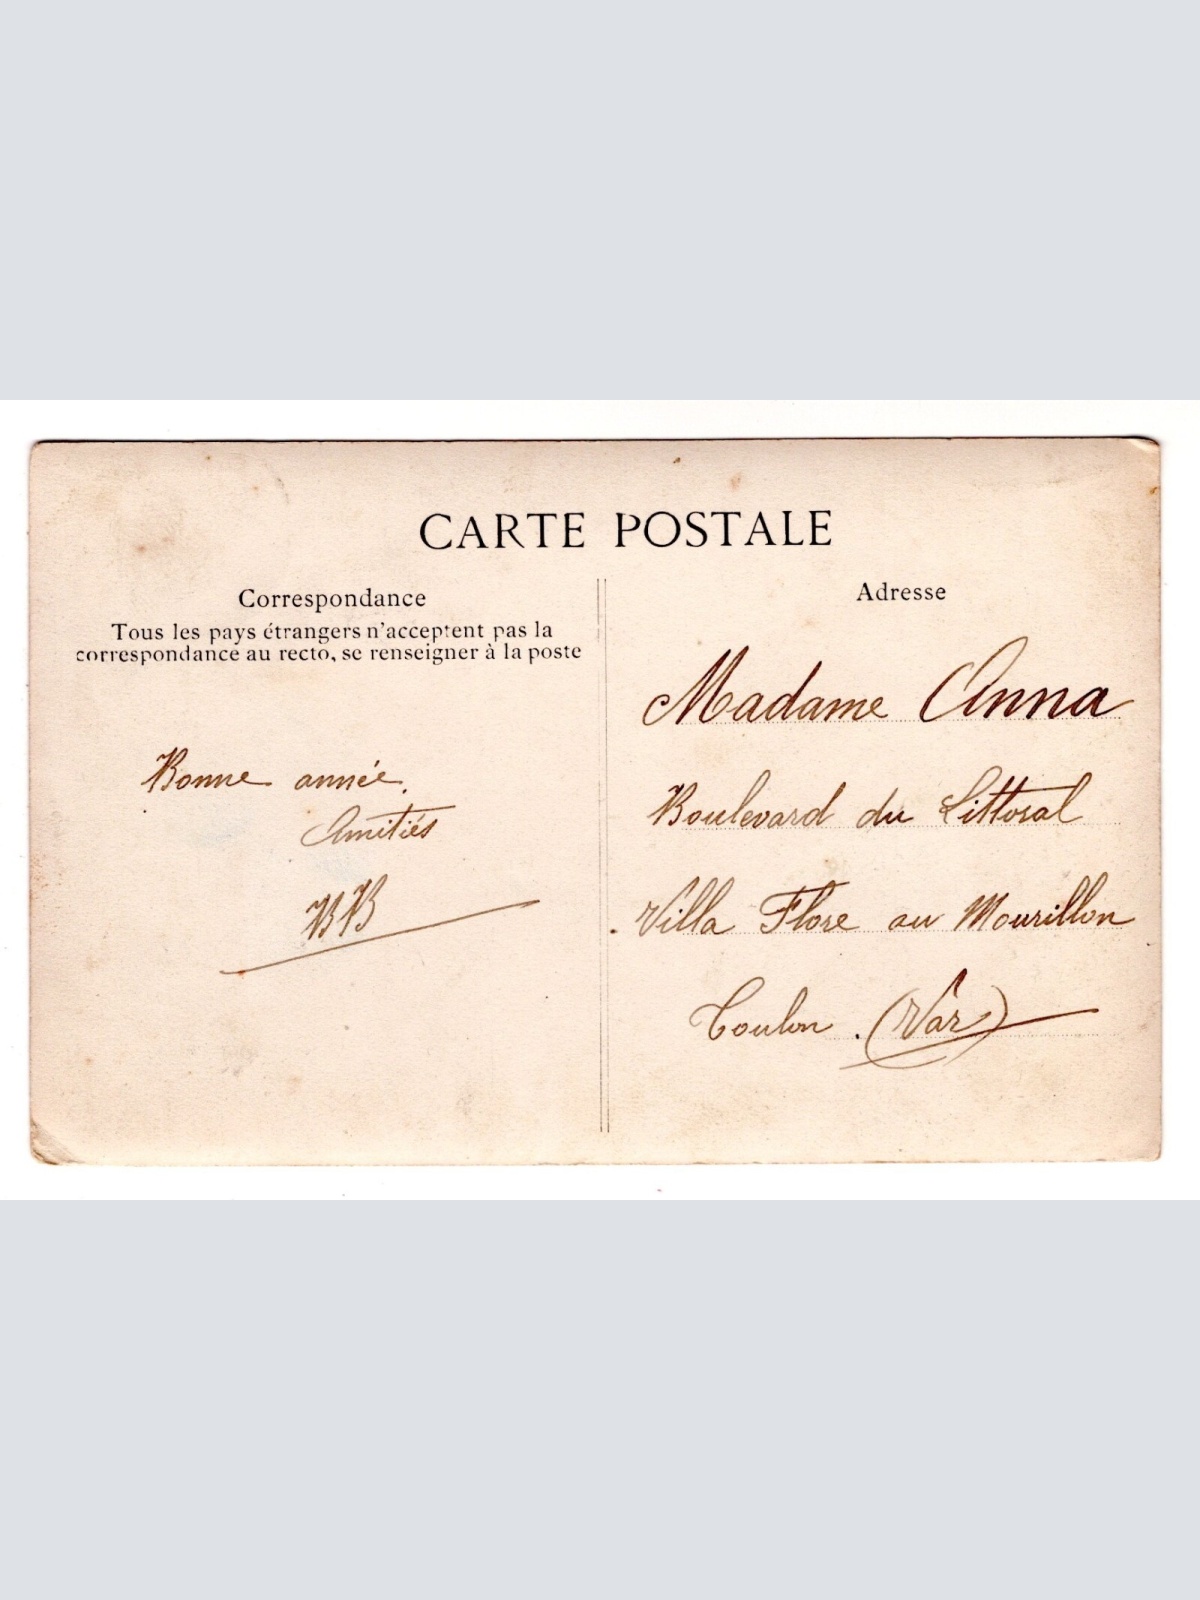 CARTE POSTALE
Correspondance
Tous les pays étrangers n'acceptent pas la
correspondance au recto, se renseigner à la poste
Bonne année.
Amitiés
BB
Adresse
Madame Anna
Boulevard du Littoral
Villa Flore au Mourillon
Toulon . (Var)